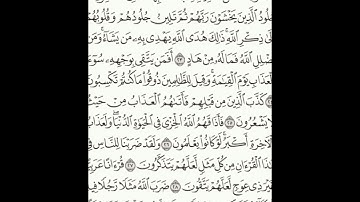 جُلُودُ ٱلَّذِينَ يَخْشَوْنَ رَبَّهُمْ ثُمَّ تَلِينُ جُلُودُهُمْ وَقُلُوبُهُمْ
إِلَىٰ ذِكْرِ ٱللَّهِ ذَٰلِكَ هُدَى ٱللَّهِ يَهْدِى بِهِۦ مَن يَشَآءُ وَمَن
يُضْلِلِ ٱللَّهُ فَمَا لَهُۥ مِنْ هَادٍ ٢٣ أَفَمَن يَتَّقِى بِوَجْهِهِۦ سُوٓءَ
ٱلْعَذَابِ يَوْمَ ٱلْقِيَٰمَةِ وَقِيلَ لِلظَّٰلِمِينَ ذُوقُوا۟ مَا كُنتُمْ تَكْسِبُونَ
٢٤ كَذَّبَ ٱلَّذِينَ مِن قَبْلِهِمْ فَأَتَىٰهُمُ ٱلْعَذَابُ مِنْ حَيْثُ
لَا يَشْعُرُونَ ٢٥ فَأَذَاقَهُمُ ٱللَّهُ ٱلْخِزْىَ فِى ٱلْحَيَوٰةِ ٱلدُّنْيَا وَلَعَذَابُ
ٱلْءَاخِرَةِ أَكْبَرُ لَوْ كَانُوا۟ يَعْلَمُونَ ٢٦ وَلَقَدْ ضَرَبْنَا لِلنَّاسِ فِى
هَٰذَا ٱلْقُرْءَانِ مِن كُلِّ مَثَلٍ لَّعَلَّهُمْ يَتَذَكَّرُونَ ٢٧ قُرْءَانًا عَرَبِيًّا
غَيْرَ ذِى عِوَجٍ لَّعَلَّهُمْ يَتَّقُونَ ٢٨ ضَرَبَ ٱللَّهُ مَثَلًا رَّجُلًا فِيهِ